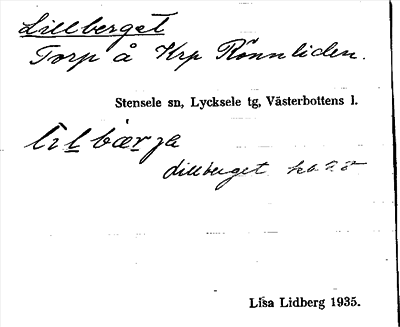 Lillberget
Torp å Krp Rönnliden.
Stensele sn, Lycksele tg, Västerbottens l.
Lillberget
Lisa Lidberg 1935.